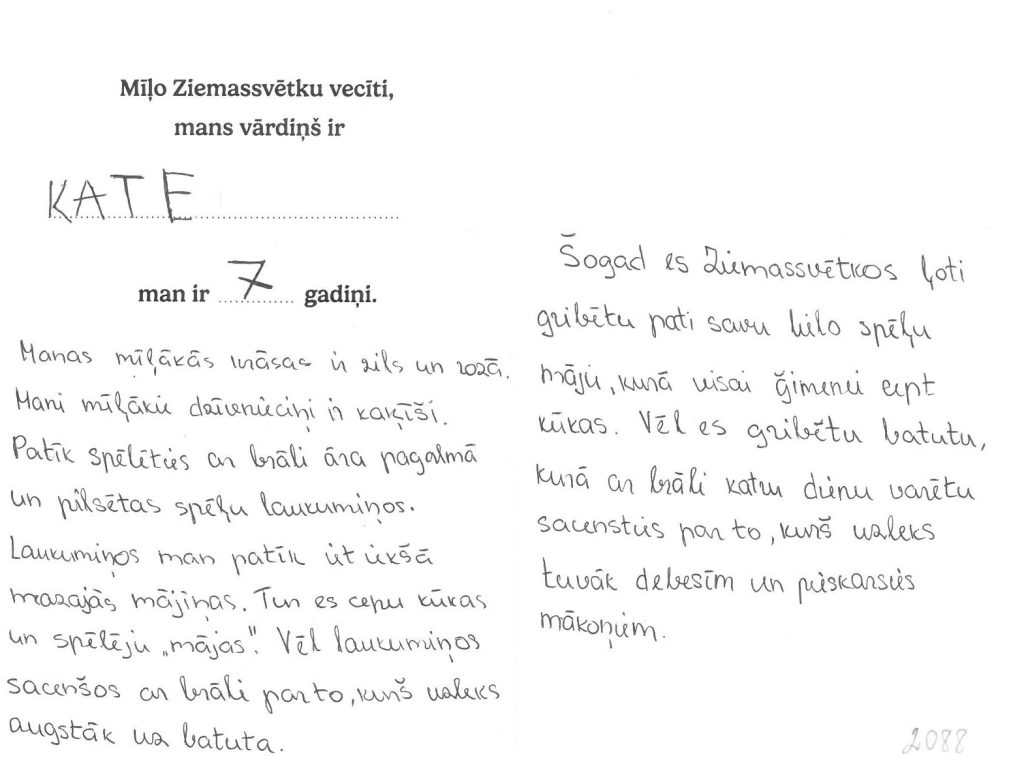 Mīļo Ziemassvētku vecīti,
mans vārdiņš ir
KATE
man ir 7 gadiņi.
Manas mīļākās krāsas ir zils un rozā.
Mani mīļākie dzīvnieciņi ir kaķīši.
Patīk spēlēties ar brāli āra pagalmā
un pilsētas spēļu laukumiņos.
Laukumiņos man patīk iet iekšā
mazajās mājiņas. Tur es cepu kūkas
un spēlēju „mājas". Vēl laukumiņos
sacenšos ar brāli par to, kurš uzleks
augstāk uz batuta.
Šogad es Ziemassvētkos ļoti
gribētu pati savu lielo spēļu
māju, kurā visai ģimenei cept
kūkas. Vēl es gribētu batutu,
kurā ar brāli katru dienu varētu
sacensties par to, kurš uzleks
tuvāk debesīm un pieskarsies
mākoņiem.
2088